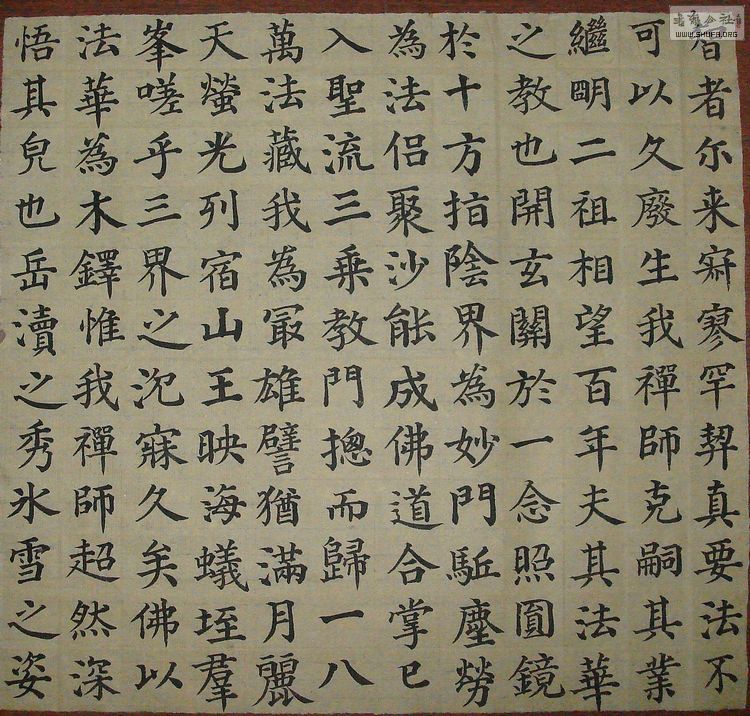 智者尔来寂寥罕契真要法不
可以久廢生我禪師克嗣其業
繼明二祖相望百年夫其法華
之教也開玄關於一念照圓鏡
於十方指陰界為妙門駈塵勞
為法侶聚沙能成佛道合掌已
入聖流三乘教門揔而歸一八
萬法藏我為冣雄譬猶滿月麗
天螢光列宿山王映海蟻垤羣
峯嗟乎三界之沉寐久矣佛以
法華為木鐸惟我禪師超然深
悟其皃也岳瀆之秀冰雪之姿
WWW.SHUFA.ORG